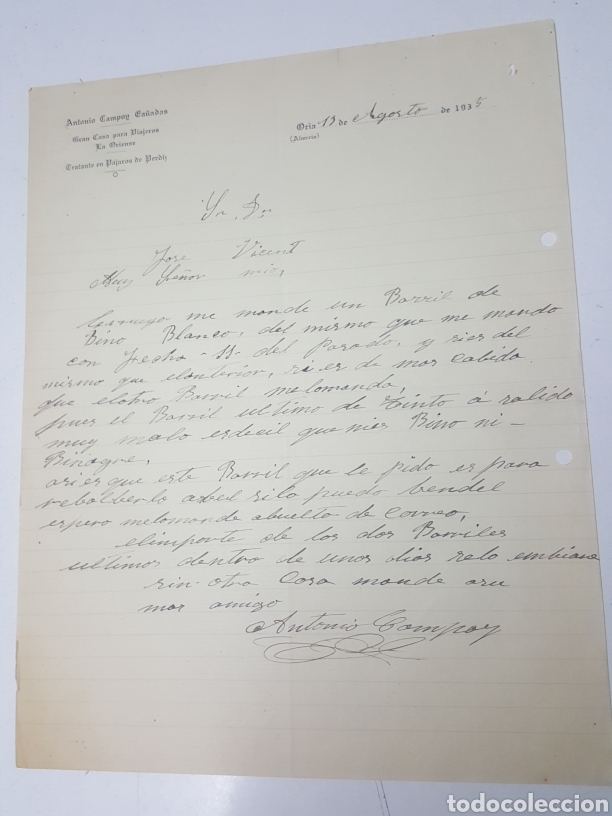 Antonio Campoy Cañadas
Gran Casa para Viajeros
La Oriense
Tratante en Pájaros de Perdiz
Oria 13 de Agosto de 1935
(Almería)
Sr. Dn
Jose Vicent
Muy Señor mio,
Leruego me mande un Barril de
Bino Blanco, del mismo que me mando
con fecha -11- del pasado, y sies del
mismo que elanterior, si es de mas cabeda
que elotro Barril melomanda,
pues el Barril ultimo de tinto á salido
muy malo esdecil que nies Bino ni-
Binagre,
asies que este Barril que le pido es para
rebolberlo aber silo puedo bendel
espero melomande abuelta de correo,
elimporte de los dos Barriles
ultimos dentro de unos dias selo embiare
sin otra Cosa mande asu
mas amigo
Antonio Campoy
todocoleccion
todocoleccion.net